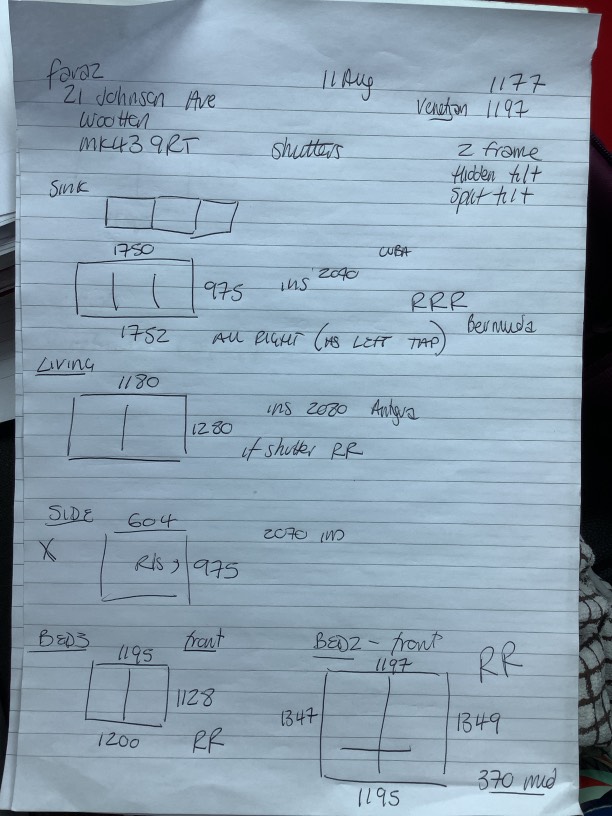 Faraz
21 Johnson Ave
Wootten
MK43 9RT
11 Aug
1177
Venetian 1197
Shutters
Z frame
Hidden tilt
Split tilt
Sink
1750
975 ins 2040
1752
CUBA
RRR
Bermuda
ALL RIGHT (AS LEFT TAP)
LIVING
1180
1280
ins 2080 Antigua
if shutter RR
SIDE
X
604
R/S
975
2070 INS
BED3 front
1195
1128
1200 RR
BED2 - front
1197
RR
1347
1349
370 mid
1195